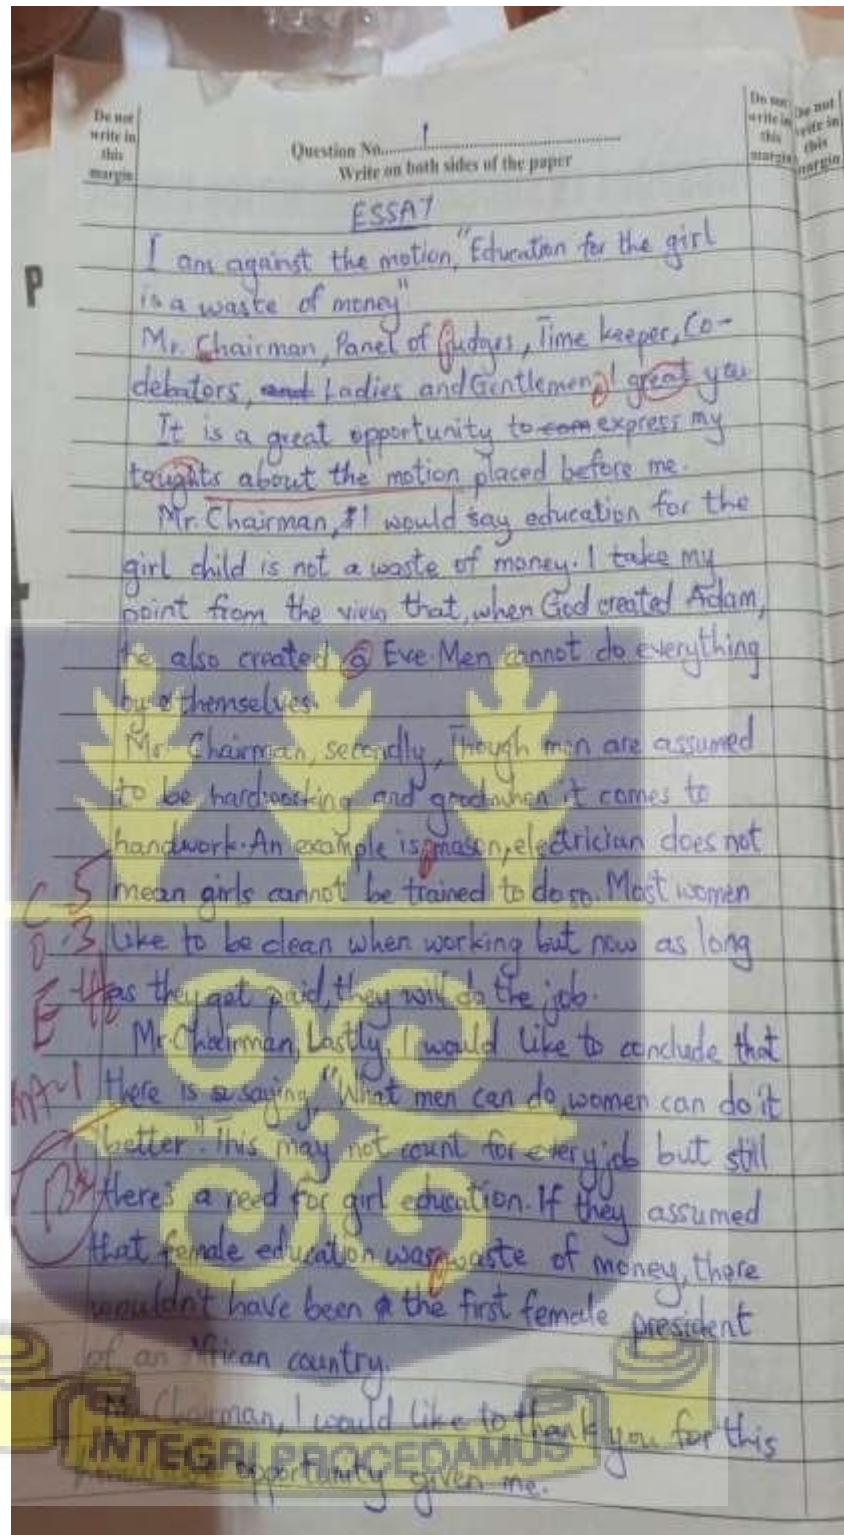 Do not
write in
this
margin
Question No. 1
Write on both sides of the paper
Do not
write in
this
margin
Do not
write in
this
margin
P
ESSAY
I am against the motion, "Education for the girl
is a waste of money"
Mr. Chairman, Panel of judges, Time keeper, Co-
debators, and Ladies and Gentlemen, I great you
It is a great opportunity to com express my
taughts about the motion placed before me.
Mr. Chairman, I would say education for the
girl child is not a waste of money. I take my
point from the view that, when God created Adam,
he also created a Eve. Men cannot do everything
by themselves.
Mr. Chairman, secondly, Though men are assumed
to be hardworking and good when it comes to
handwork. An example is mason, electrician does not
mean girls cannot be trained to do so. Most women
like to be clean when working but now as long
as they get paid, they will do the job.
Mr. Chairman, Lastly, I would like to conclude that
there is a saying, "What men can do, women can do it
better". This may not count for every job but still
there's a need for girl education. If they assumed
that female education was waste of money, there
wouldn't have been the first female president
of an African country.
Mr. Chairman, I would like to thank you for this
opportunity given me.
C-5
O-3
E-4½
MA-1
INTEGRI PROCEDAMUS